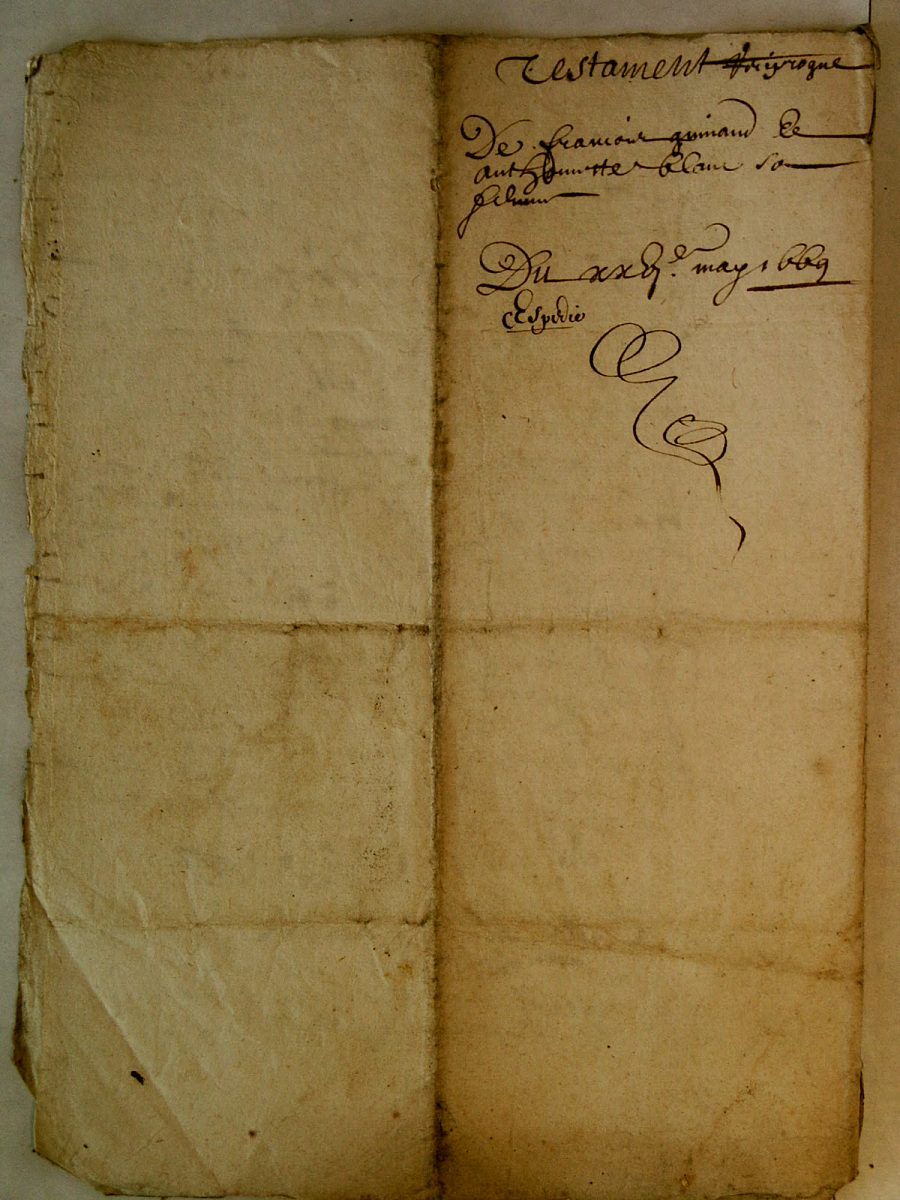 Testament resiproque
De francois guinand Et
anthoinette blanc sa
femme
Du xxii.e may 1669
Espedie